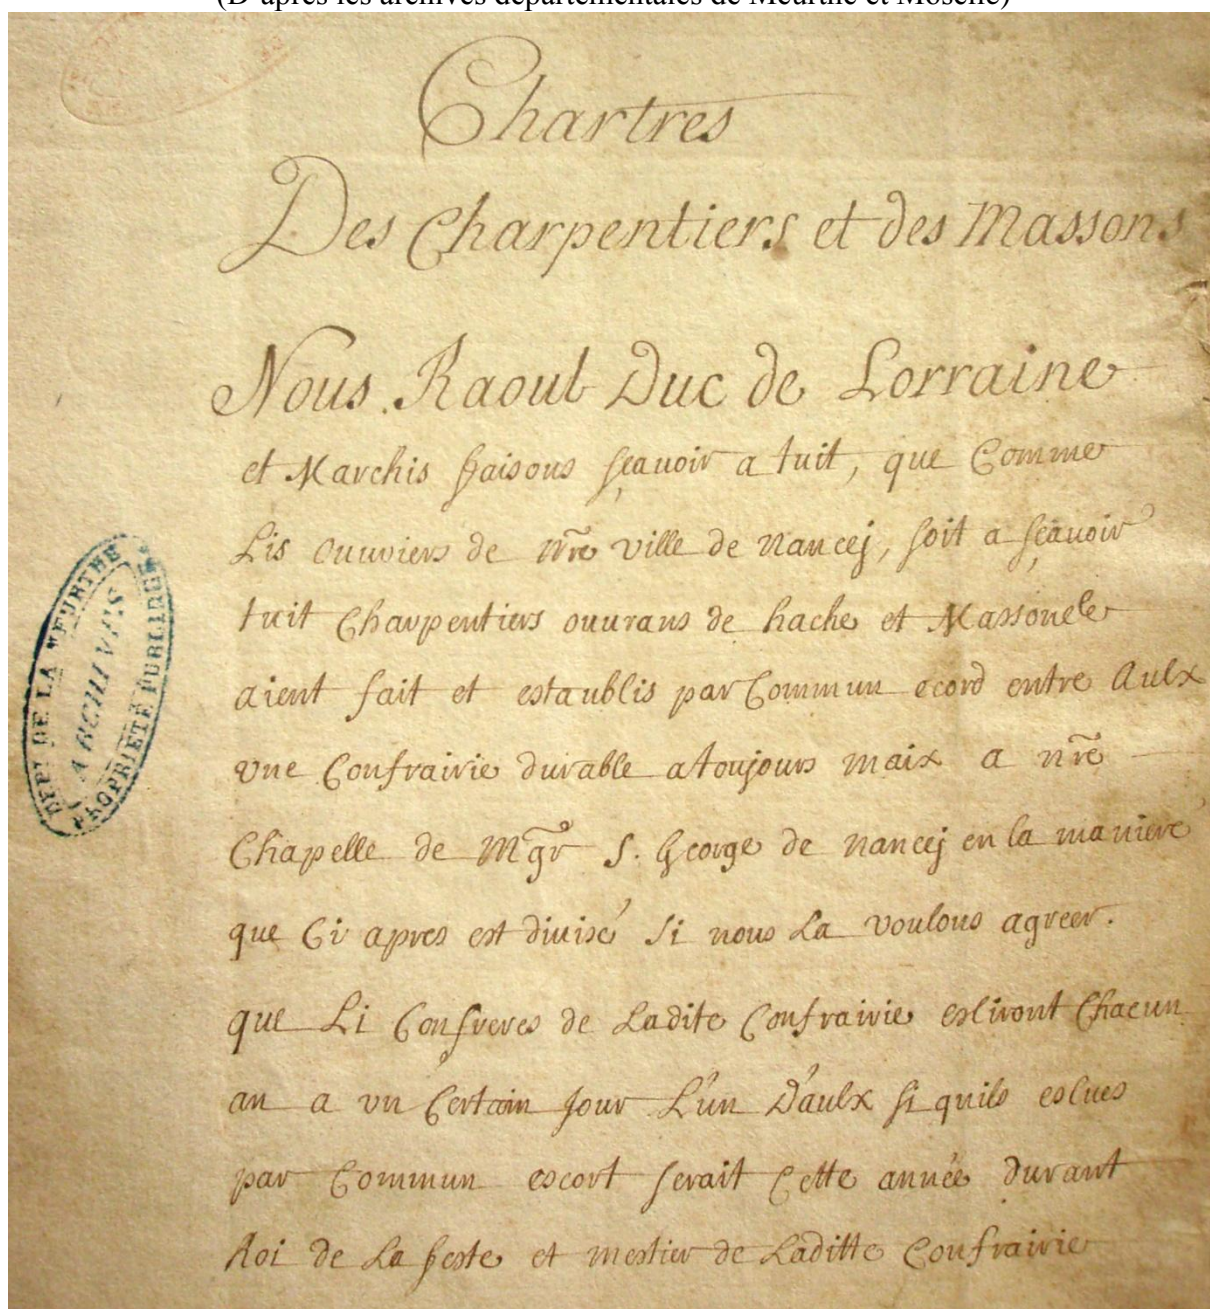 (D'après les archives départementales de Meurthe et Moselle)
Chartres
Des Charpentiers et des Massons
Nous Raoul Duc de Lorraine
et Marchis faisons sçauoir a tuit, que Comme
Lis Ouuriers de nr̃e ville de Nancej, soit a sçauoir
tuit Charpentiers ouurans de hache et Massonele
aient fait et estaublis par Commun ecord entre Aulx
vne Confrairie durable a toujours maix a nr̃e
Chapelle de Mgr̃ S. George de Nancej en la maniere
que Ci apres est diuisé si nous La voulons agreer.
que Li Confreres de Ladite Confrairie esliront Chacun
an a vn Certain Jour L'un D'aulx si quils eslues
par Commun escort serait Cette année durant
Roi de La feste et mestier de Laditte Confrairie
DEPT DE LA MEURTHE
ARCHIVES
PROPRIÉTÉ PUBLIQUE